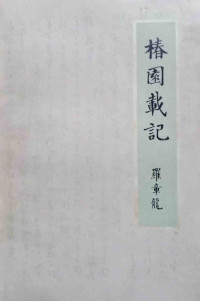 椿園載記
羅章龍